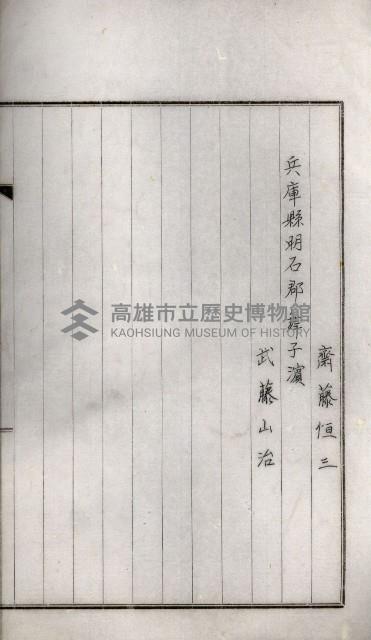 齋藤恒三
兵庫縣明石郡舞子濵
武藤山治
高雄市立歷史博物館
KAOHSIUNG MUSEUM OF HISTORY